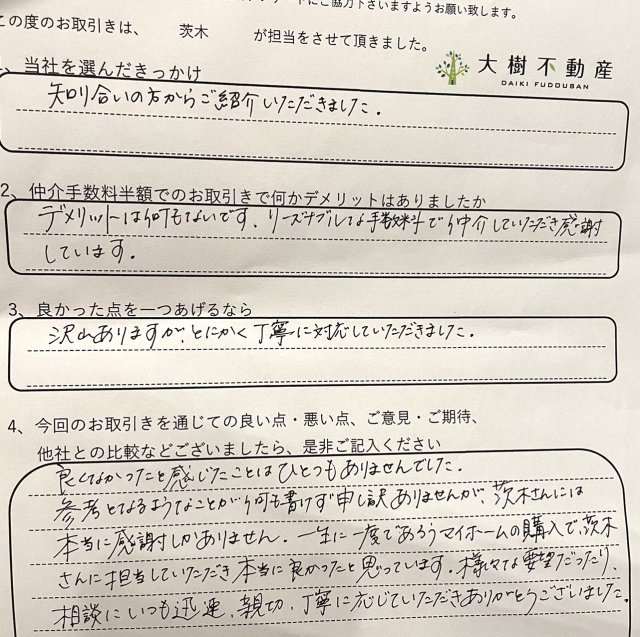 ンケートにご協力下さいますようお願い致します。
この度のお取引きは、 茨木 が担当をさせて頂きました。
大樹不動産
DAIKI FUDOUSAN
1、当社を選んだきっかけ
知り合いの方からご紹介いただきました。
2、仲介手数料半額でのお取引きで何かデメリットはありましたか
デメリットは何もないです。リーズナブルな手数料で仲介していただき感謝
しています。
3、良かった点を一つあげるなら
沢山ありますが、とにかく丁寧に対応していただきました。
4、今回のお取引きを通じての良い点・悪い点、ご意見・ご期待、
他社との比較などございましたら、是非ご記入ください
良くなかったと感じたことはひとつもありませんでした。
参考となるようなことが何も書けず申し訳ありませんが、茨木さんには
本当に感謝しかありません。一生に一度であろうマイホームの購入で、茨木
さんに担当していただき本当に良かったと思っています。様々な要望だったり、
相談にいつも迅速、親切、丁寧に応じていただきありがとうございました。